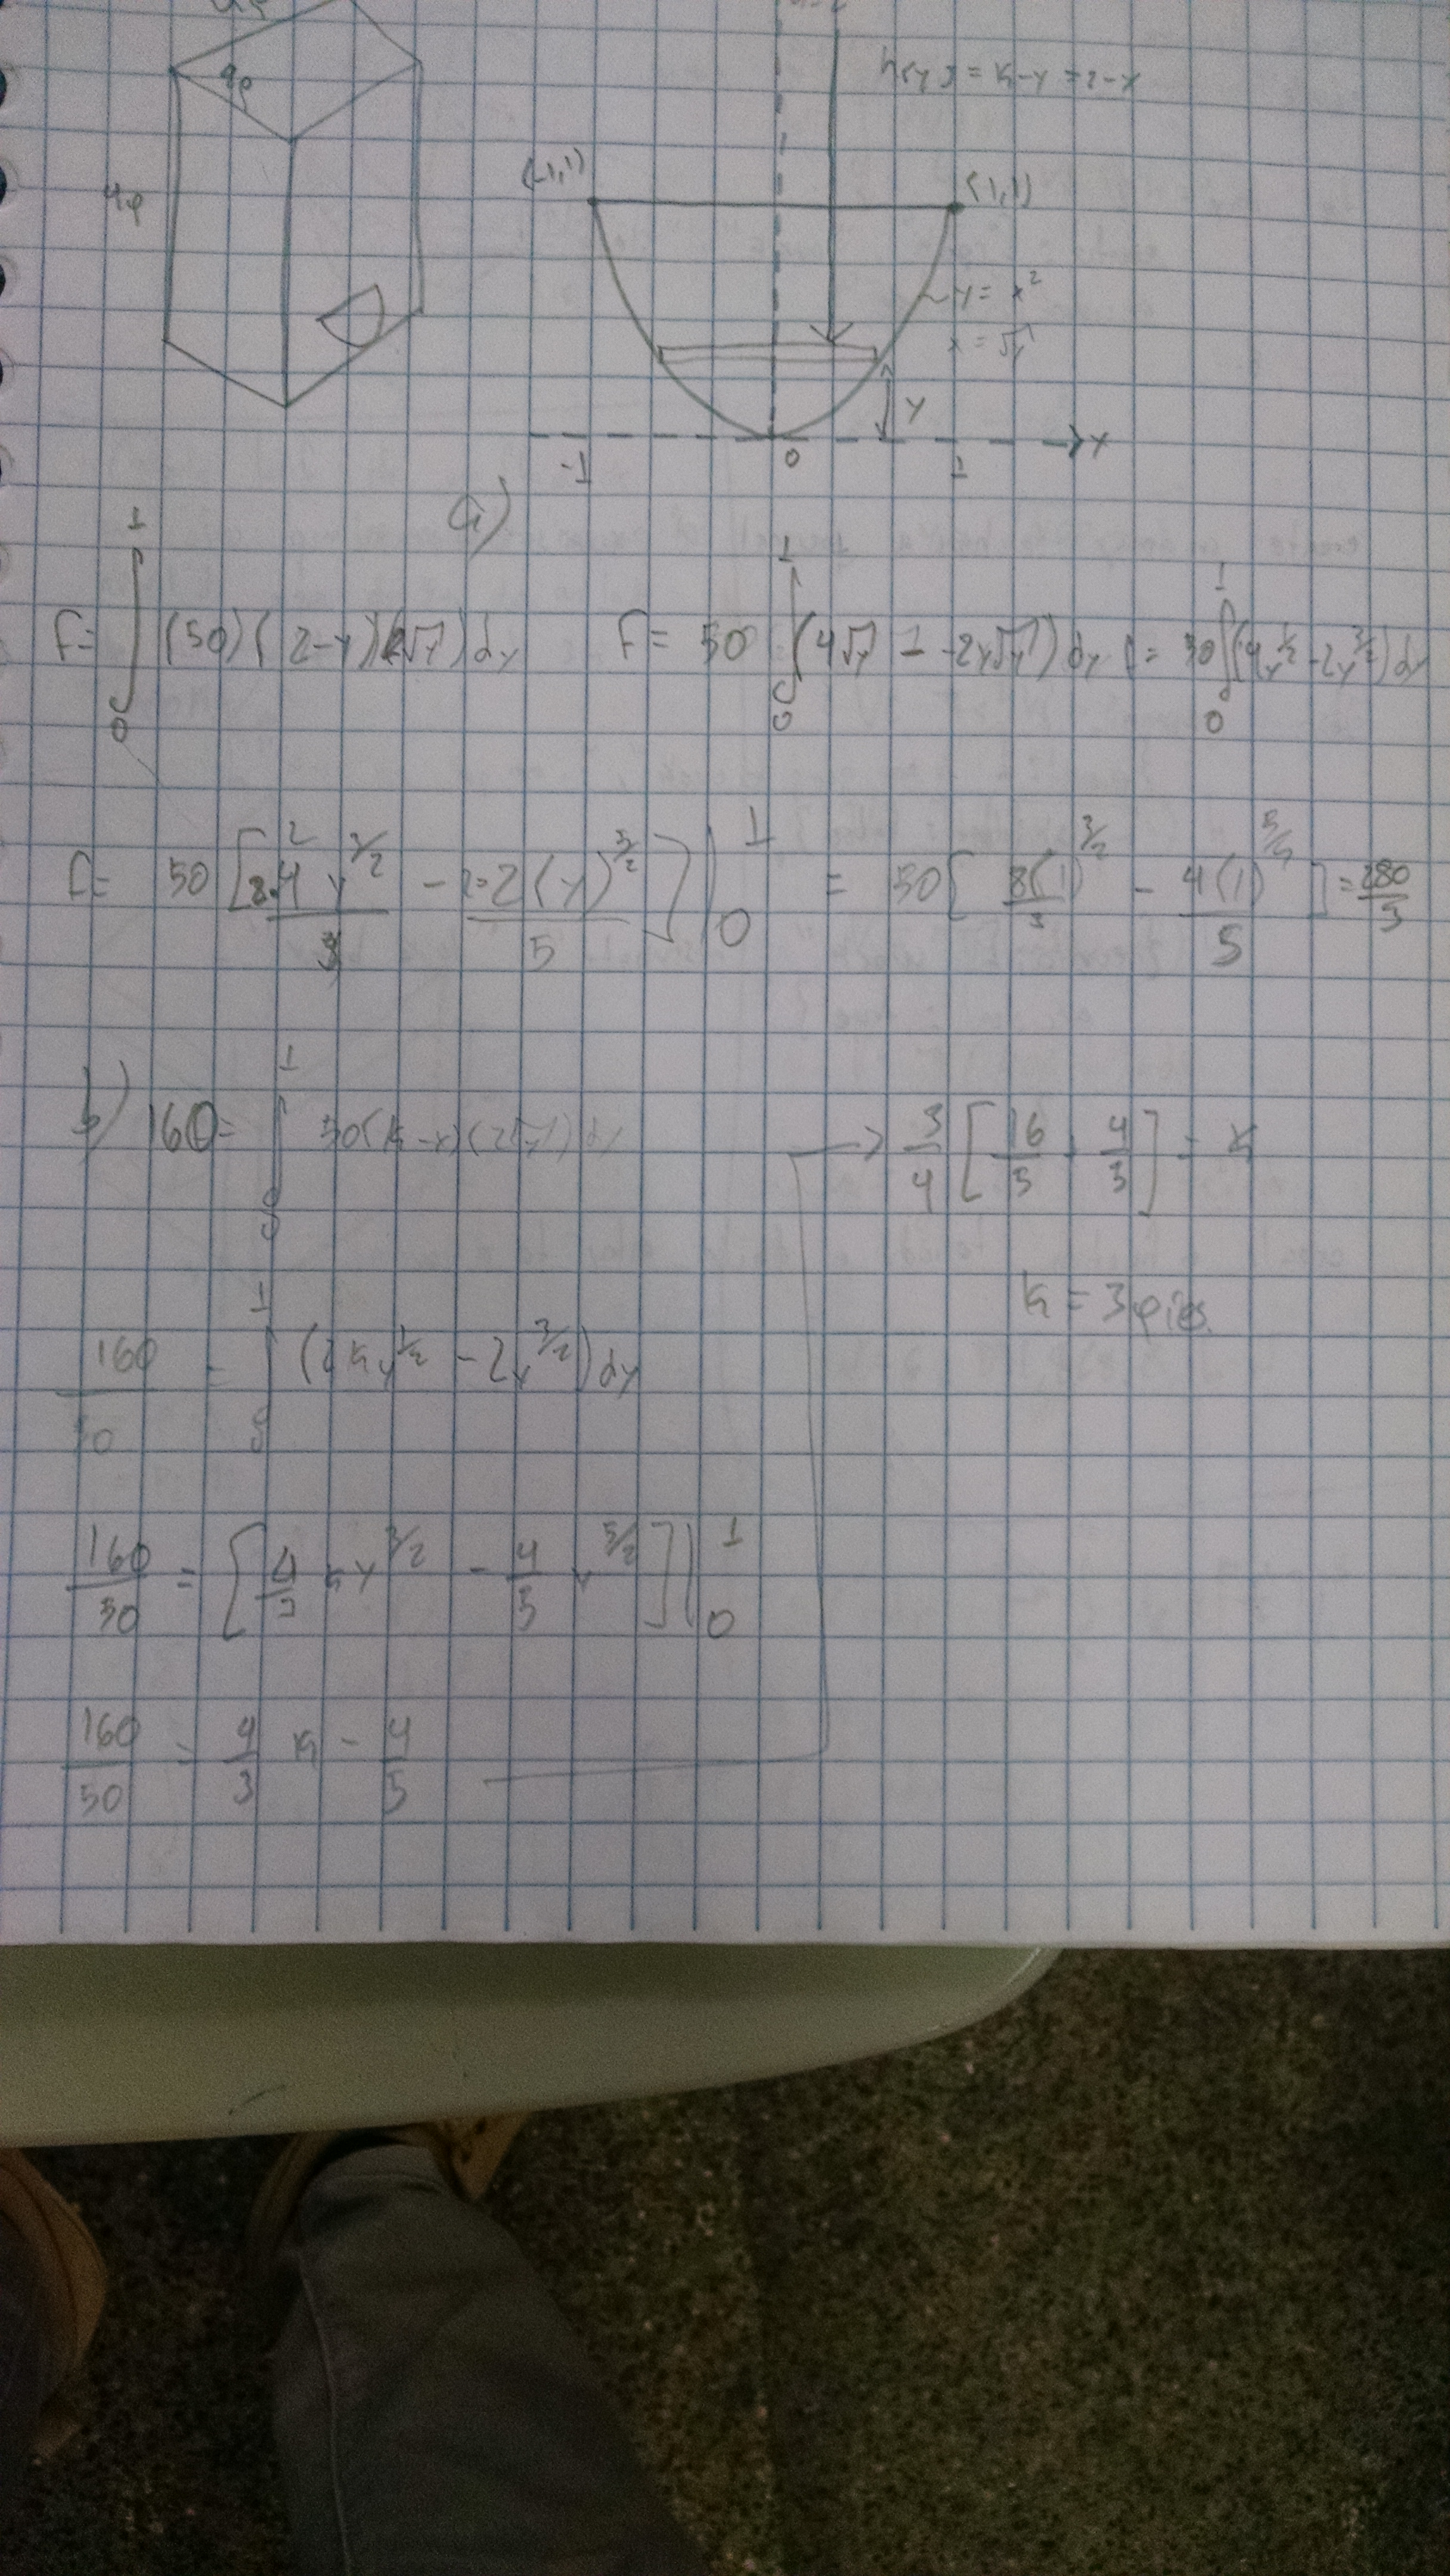 4p
4p
h(y) = k-y = 2-y
(-1,1)
(1,1)
y = x²
x = √y
y
x
-1 0 1
a)
F = ∫₀¹ (50)(2-y)(2√y)dy F = 50 ∫₀¹ (4√y - 2y√y)dy F = 50 ∫₀¹ (4y^{1/2} - 2y^{3/2})dy
F = 50 [2·4 y^{3/2}/3 - 2·2(y)^{5/2}/5] |₀¹ = 50 [8(1)^{3/2}/3 - 4(1)^{5/2}/5] = 280/3
b) 160 = ∫₀¹ 50(k-y)(2√y)dy
160/50 = ∫₀¹ (2ky^{1/2} - 2y^{3/2})dy
160/50 = [4/3 ky^{3/2} - 4/5 y^{5/2}] |₀¹
160/50 = 4/3 k - 4/5
→ 3/4 [16/5 + 4/5] = k
k = 3 pies.